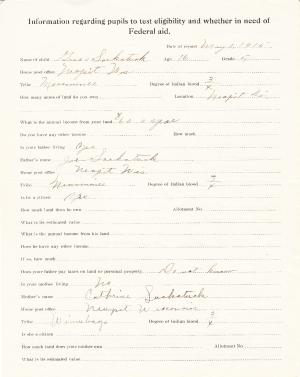 Information regarding pupils to test eligibility and whether in need of
Federal aid.
Date of report May 1, 1915
Name of child Sackatuck Age 16 Grade 5
Home post office Neopit Wis
Tribe Menominee Degree of Indian blood 3/4
How many acres of land do you own Location Neopit Wis
What is the annual income from your land $60 a year
Do you have any other income How much
Is your father living Yes
Father's name Joe Sackatuck
Home post office Neopit Wis
Tribe Menominee Degree of Indian blood
Is he a citizen Yes
How much land does he own Allotment No.
What is its estimated value
What is the annual income from his land
Does he have any other income
If so, how much
Does your father pay taxes on land or personal property Do not know
Is your mother living No
Mother's name Cathrine Sackatuck
Home post office Neopit Wisconsin
Tribe Winnebago Degree of Indian blood
Is she a citizen
How much land does your mother own Allotment No.
What is its estimated value